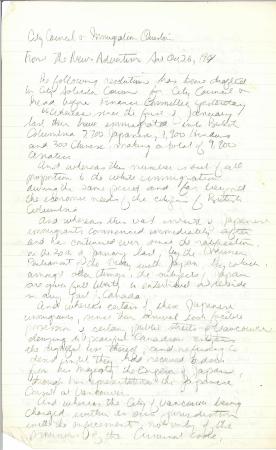 City Council & Immigration Question
From The News-Advertiser Sat Oct 26, 1907
The following resolution has been drafted
by City Solicitor Cowan for City Council &
read before Finance Committee yesterday
Whereas since the first of January
last there have immigrated into British
Columbia 7,700 Japanese, 1,900 Hindus
and 300 Chinese making a total of 9,900
Asiatics
And whereas this number is out of all
proportion to the white immigration
during the same period and far beyond
the economic needs of the citizens of British
Columbia
And whereas this was Japanese
immigrants commenced immediately after
and has continued ever since the ratification
on the 30th of January last by the Dominion
Parliament of the treaty with Japan by which,
amongst other things, the subjects of Japan
are given full liberty to enter travel & reside
in any part of Canada
And whereas certain of these Japanese
immigrants, since their arrival took
possession of certain public streets of Vancouver
denying to peaceful Canadian citizens
the right to and refusing to
until they had received
from his Majesty the Emperor of Japan,
through his representative the Japanese
Consul at Vancouver
And whereas the City of Vancouver being
charged within its own jurisdiction
with the enforcement, not only of the
provisions of the Criminal Code,